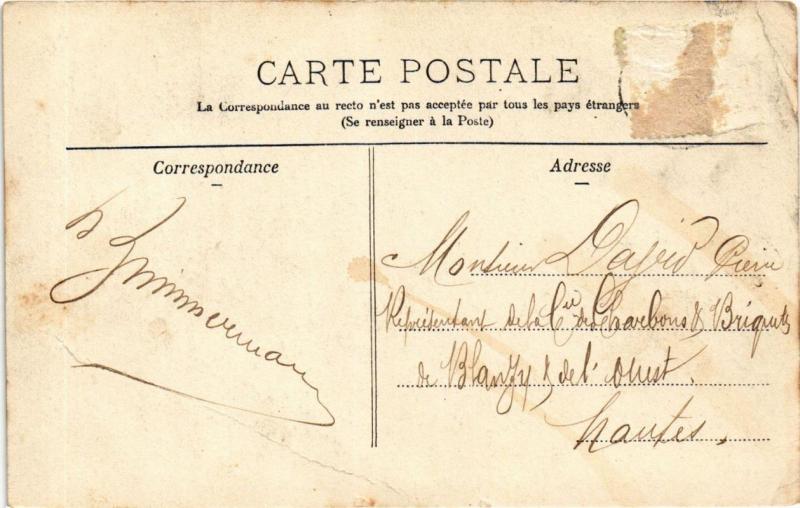 CARTE POSTALE
La Correspondance au recto n'est pas acceptée par tous les pays étrangers
(Se renseigner à la Poste)
Correspondance
Adresse
Zimmermann
Monsieur David Pierre
Représentant de la Cie des Charbons & Briquettes
de Blanzy & de l'Ouest.
Nantes,